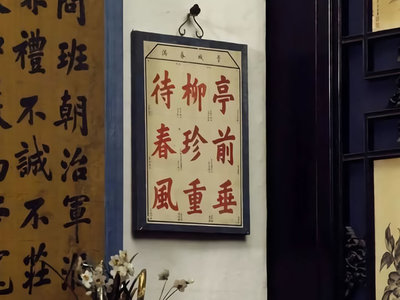 管城春满
亭前垂
柳珍重
待春風
班朝治軍
禮不誠不莊